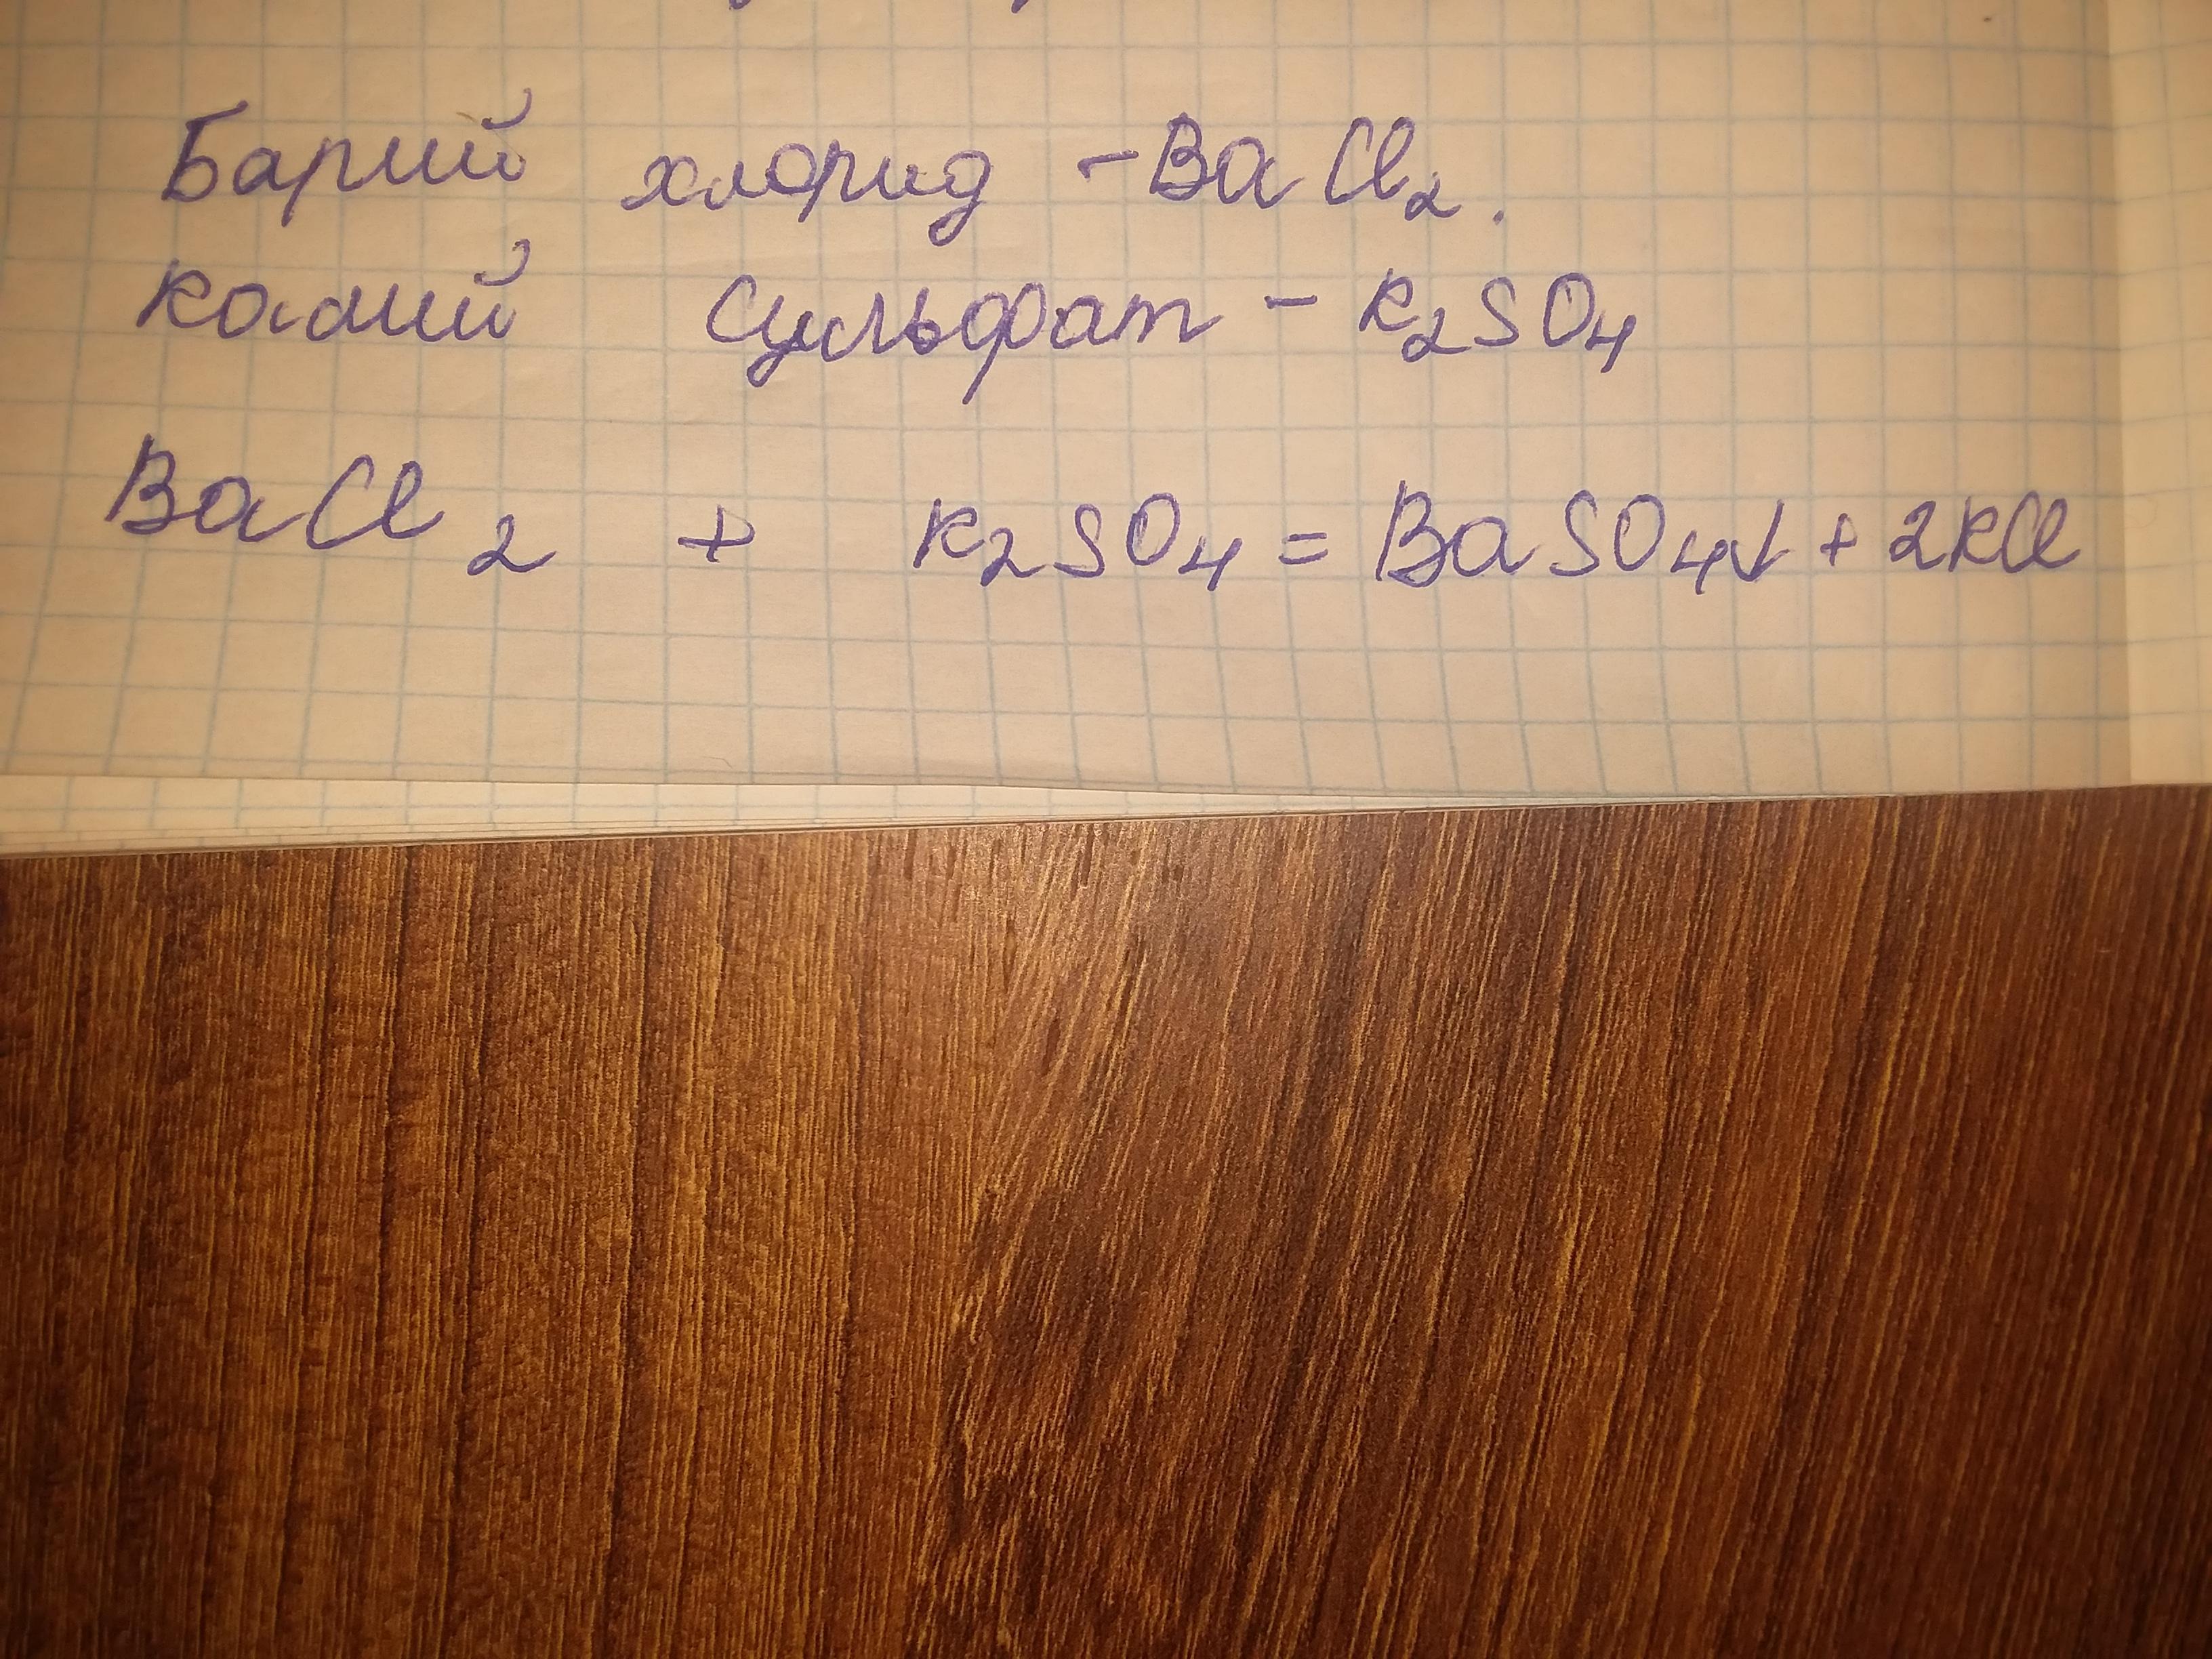 Барий хлорид - BaCl₂.
калий сульфат - K₂SO₄
BaCl₂ + K₂SO₄ = BaSO₄↓ + 2KCl